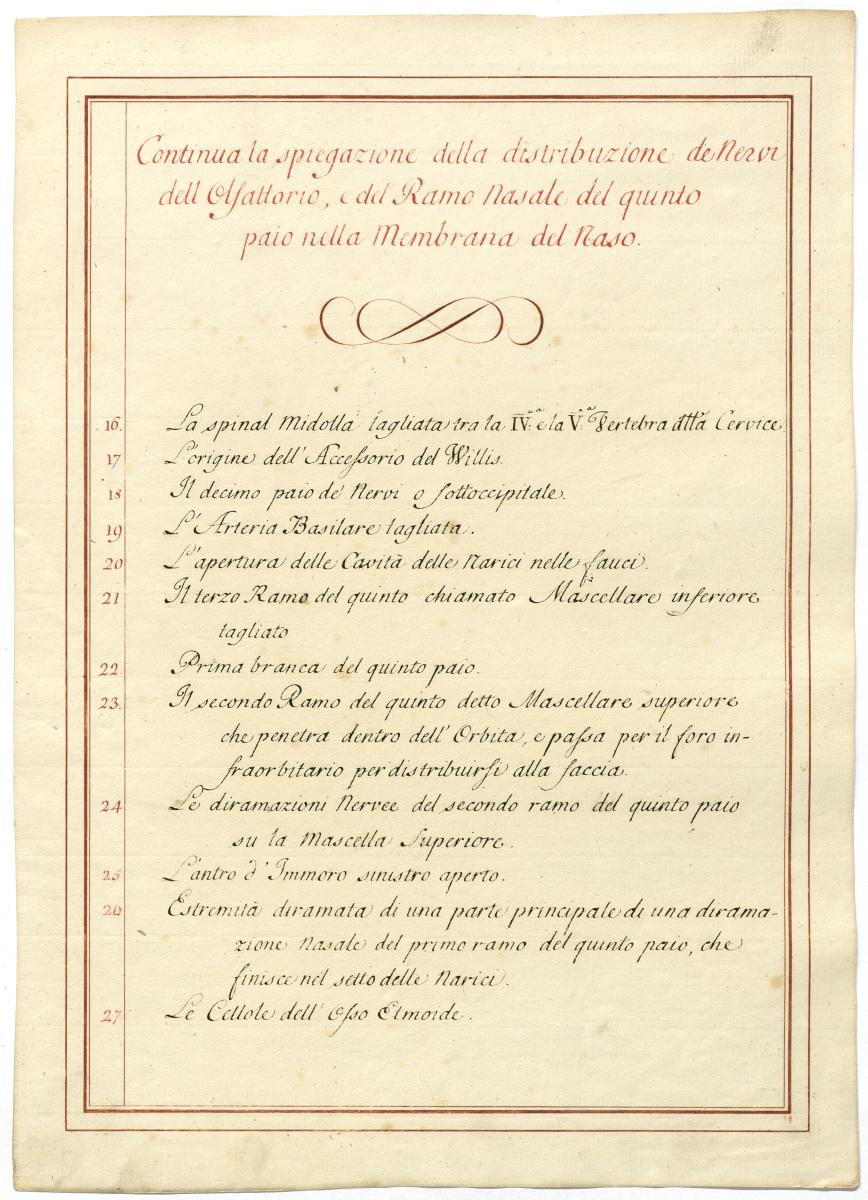 Continua la spiegazione della distribuzione de Nervi
dell Olfattorio, e del Ramo Nasale del quinto
paio nella Membrana del Naso.
16. La spinal Midolla tagliata tra la IV.a e la V.a Vertebra dtta Cervice
17 L'origine dell' Accessorio del Willis.
18 Il decimo paio de' Nervi o sottoccipitale.
19 L'Arteria Basilare tagliata.
20 L'apertura delle Cavità delle Narici nelle fauci.
21 Il terzo Ramo del quinto chiamato Mascellare inferiore
tagliato
22 Prima branca del quinto paio.
23. Il secondo Ramo del quinto detto Mascellare superiore
che penetra dentro dell' Orbita, e passa per il foro in-
fraorbitario per distribuirsi alla faccia.
24 Le diramazioni Nervee del secondo ramo del quinto paio
su la Mascella Superiore.
25 L'antro d' Immoro sinistro aperto.
26 Estremità diramata di una parte principale di una dirama-
zione Nasale del primo ramo del quinto paio, che
finisce nel setto delle Narici.
27. Le Cellole dell' Osso Etmoide.